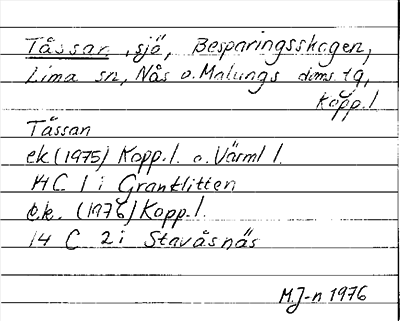 Tåssan, sjö, Besparingsskogen,
Lima sn, Nås o. Malungs doms tg,
Kopp. l
Tåssan
ek (1975) Kopp. l. o. Värml l.
14 C 1 i Granklitten
e.k. (1976) Kopp. l.
14 C 2 i Stavåsnäs
M.J-n 1976